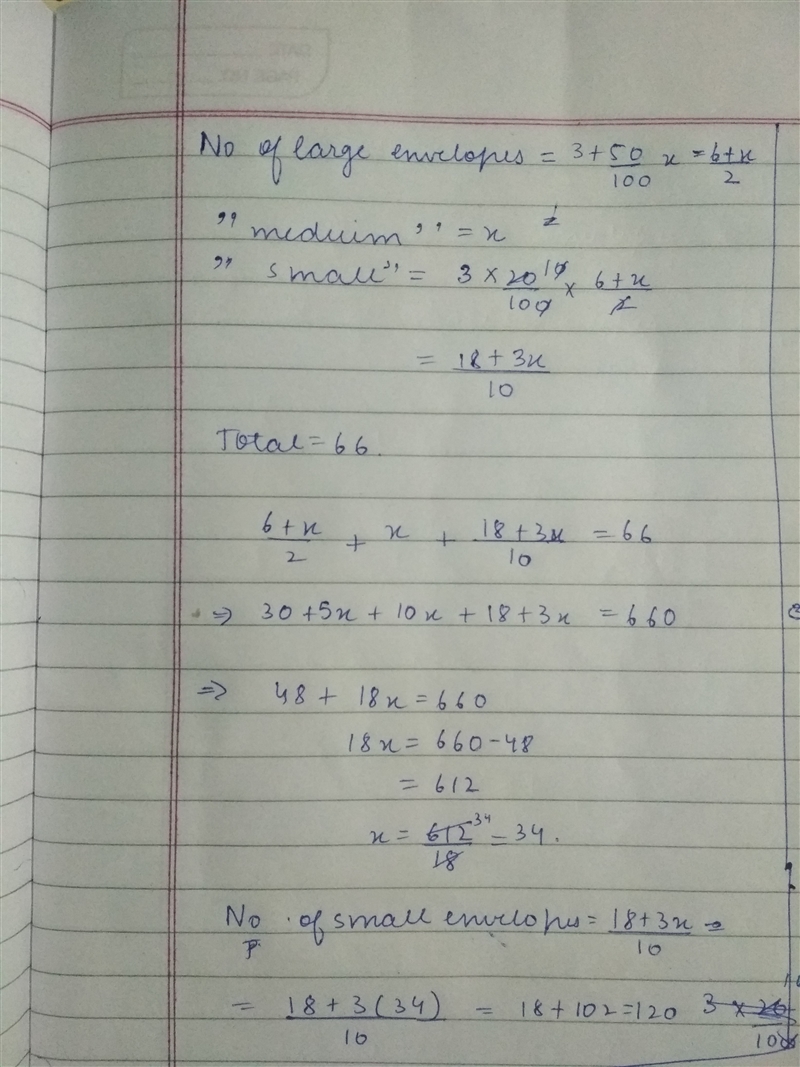 DATE
PAGE NO.
No of large envelopes = 3 + 50/100 x = 6+x/2
" meduim " = x
" small " = 3 × 20/100 × 6+x/2
= 18 + 3x/10
Total = 66.
6+x/2 + x + 18+3x/10 = 66
⇒ 30 + 5x + 10x + 18 + 3x = 660
⇒ 48 + 18x = 660
18x = 660 - 48
= 612
x = 612/18 34 = 34.
No. of small envelopes = 18+3x/10 =
= 18 + 3(34)/10 = 18 + 102 = 120 3 × 20/100